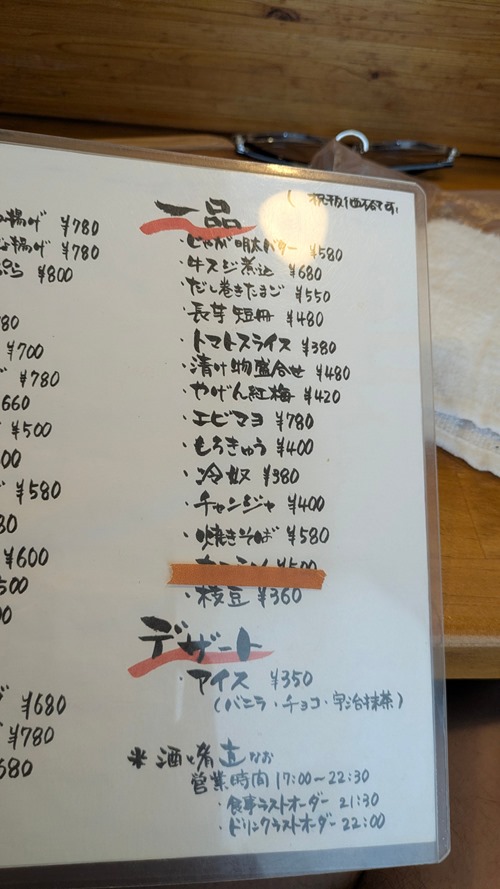 揚げ ¥780
揚げ ¥780
¥800
80
¥700
¥780
660
¥500
00
¥580
80
¥600
500
00
¥680
¥780
680
(税抜価格です。
一品
・じゃが明太バター ¥580
・牛スジ煮込 ¥680
・だし巻きたまご ¥550
・長芋短冊 ¥480
・トマトスライス ¥380
・漬け物盛合せ ¥480
・やげん紅梅 ¥420
・エビマヨ ¥780
・もろきゅう ¥400
・冷奴 ¥380
・チャンジャ ¥400
・焼きそば ¥580
¥500
・枝豆 ¥360
デザート
・アイス ¥350
(バニラ・チョコ・宇治抹茶)
※ 酒と肴 直 なお
営業時間 17:00〜22:30
・食事ラストオーダー 21:30
・ドリンクラストオーダー 22:00